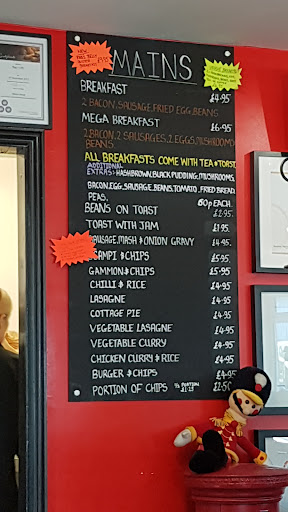 MAINS
BREAKFAST £4.95
2 BACON, SAUSAGE, FRIED EGG, BEANS
MEGA BREAKFAST £6.95
2 BACON, 2 SAUSAGES, 2 EGGS, MUSHROOMS
BEANS
ALL BREAKFASTS COME WITH TEA & TOAST
ADDITIONAL
EXTRAS: HASHBROWN, BLACK PUDDING, MUSHROOMS,
BACON, EGG, SAUSAGE, BEANS, TOMATO, FRIED BREAD
PEAS. 60p EACH.
BEANS ON TOAST £2.95
TOAST WITH JAM £1.95
SAUSAGE, MASH & ONION GRAVY £4.95
SCAMPI & CHIPS £5.95
GAMMON & CHIPS £5.95
CHILLI & RICE £4.95
LASAGNE £4.95
COTTAGE PIE £4.95
VEGETABLE LASAGNE £4.95
VEGETABLE CURRY £4.95
CHICKEN CURRY & RICE £4.95
BURGER & CHIPS £4.95
PORTION OF CHIPS ½ PORTION £1.25 £2.50